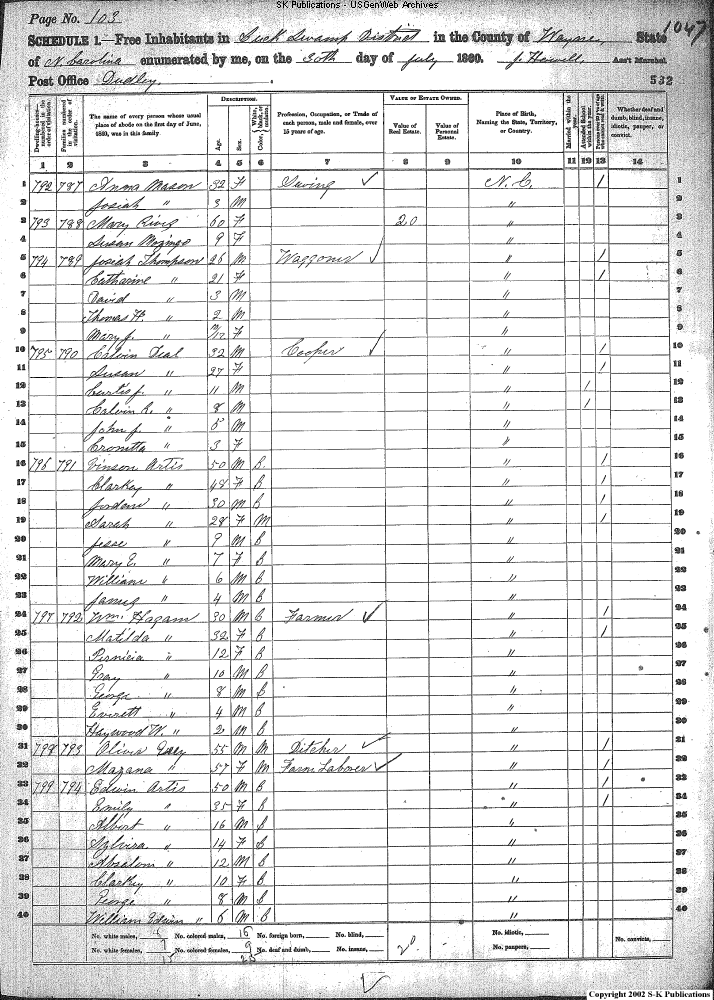 SK Publications - USGenWeb Archives
Page No. 103
1047
SCHEDULE 1.—Free Inhabitants in Buck Swamp District in the County of Wayne, State
of N. Carolina enumerated by me, on the 30th day of July 1860. J. Howell, Ass't Marshal.
Post Office Dudley.
532
Dwelling-houses numbered in the order of visitation.
Families numbered in the order of visitation.
The name of every person whose usual place of abode on the first day of June, 1860, was in this family.
DESCRIPTION.
Age.
Sex.
Color, White, black, or mulatto.
Profession, Occupation, or Trade of each person, male and female, over 15 years of age.
VALUE OF ESTATE OWNED.
Value of Real Estate.
Value of Personal Estate.
Place of Birth, Naming the State, Territory, or Country.
Married within the year.
Attended School within the year.
Whether deaf and dumb, blind, insane, idiotic, pauper, or convict.
1 2 3 4 5 6 7 8 9 10 11 12 13 14
1 792 787 Anna Mason 32 F N. C. / 1
2 Josiah " 3 M " 2
3 793 788 Mary 60 F 20 " 3
4 Susan Mozingo 9 F " 4
5 794 789 Josiah Thompson 26 M Waggoner " / 5
6 Catharine " 21 F " / 6
7 David " 3 M " 7
8 Thomas H. " 2 M " 8
9 Mary J. " F " 9
10 795 790 Calvin Deal 32 M Cooper " / 10
11 Susan " 27 F " / 11
12 Curtis J. " 11 M " / 12
13 Calvin R. " 8 M " / 13
14 John J. " M " 14
15 " 3 F " 15
16 796 791 Vinson Artis 50 M B " / 16
17 Clarkey " 48 F B " / 17
18 Jordan " 30 M B " / 18
19 Sarah " 28 F M " / 19
20 Jesse " 9 M B " 20
21 Mary E. " 7 F B " 21
22 William " 6 M B " 22
23 " 4 M B " 23
24 797 792 Wm. Hagam 30 M B Farmer " / 24
25 Matilda " 32 F B " / 25
26 " 12 F B " 26
27 Gray " 10 M B " 27
28 George " 8 M B " 28
29 Everett " 4 M B " 29
30 Haywood W. " 2 M B " 30
31 798 793 Oliver 55 M M Ditcher " / 31
32 Mazana " 57 F M Farm Laborer " / 32
33 799 794 Edwin Artis 50 M B " / 33
34 Emily " 35 F B " / 34
35 Albert " 16 M B " 35
36 Sylvira " 14 F B " 36
37 Absalom " 12 M B " 37
38 Clarkey " 10 F B " 38
39 George " 8 M B " 39
40 William Edwin " 6 M B " 40
No. white males, No. colored males, 16 No. foreign born, No. blind, No. idiotic,
No. white females, 7 No. colored females, 9 No. deaf and dumb, No. insane, 20 No. paupers, No. convicts,
15 25
Copyright 2002 S-K Publications